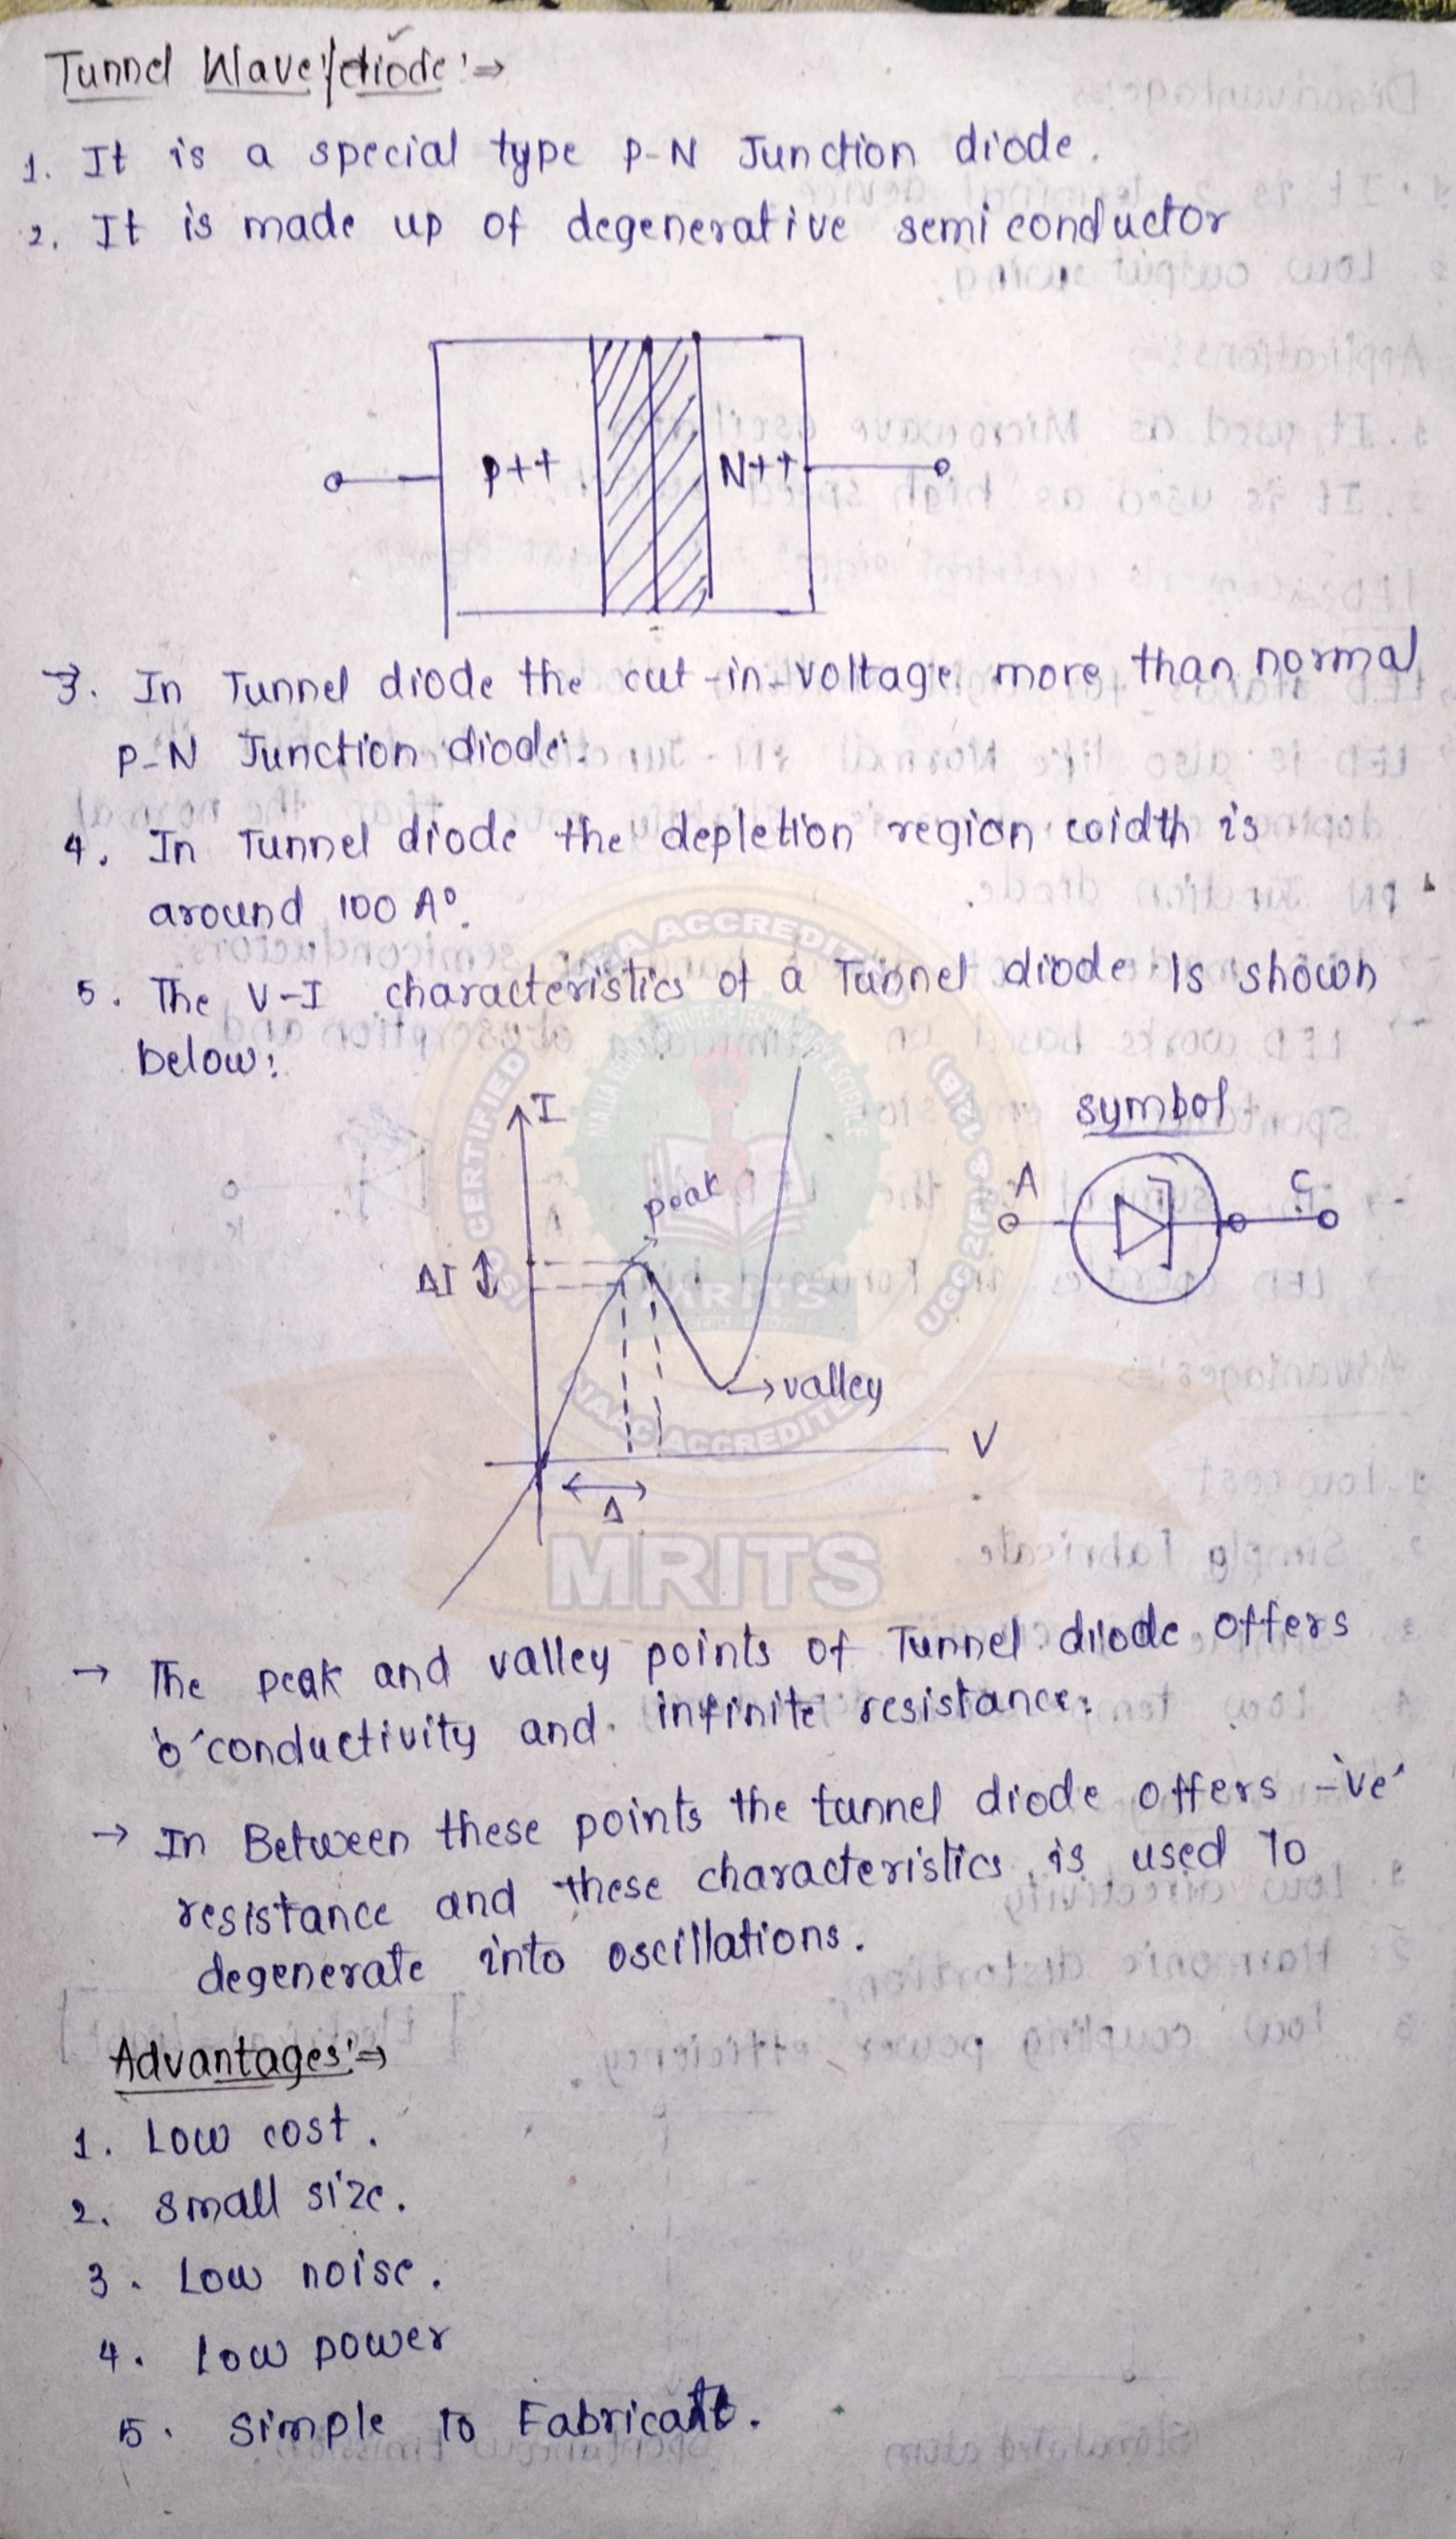 Tunnel Wave/diode:⇒
1. It is a special type P-N Junction diode.
2. It is made up of degenerative semiconductor
P++ N++
→3. In Tunnel diode the cut-in-voltage more than normal
P-N Junction diode.
4. In Tunnel diode the depletion region width is
around 100 A°.
5. The V-I characteristics of a Tunnel diode Is shown
below:
I
symbol
peak
A C
ΔI
→valley
V
Δ
MRITS
MRITS
→ The peak and valley points of Tunnel diode offers
'0' conductivity and infinite resistance.
→ In Between these points the tunnel diode offers -'ve'
resistance and these characteristics is used To
degenerate into oscillations.
Advantages:⇒
1. Low cost.
2. Small size.
3. Low noise.
4. Low power
5. Simple to Fabricate.